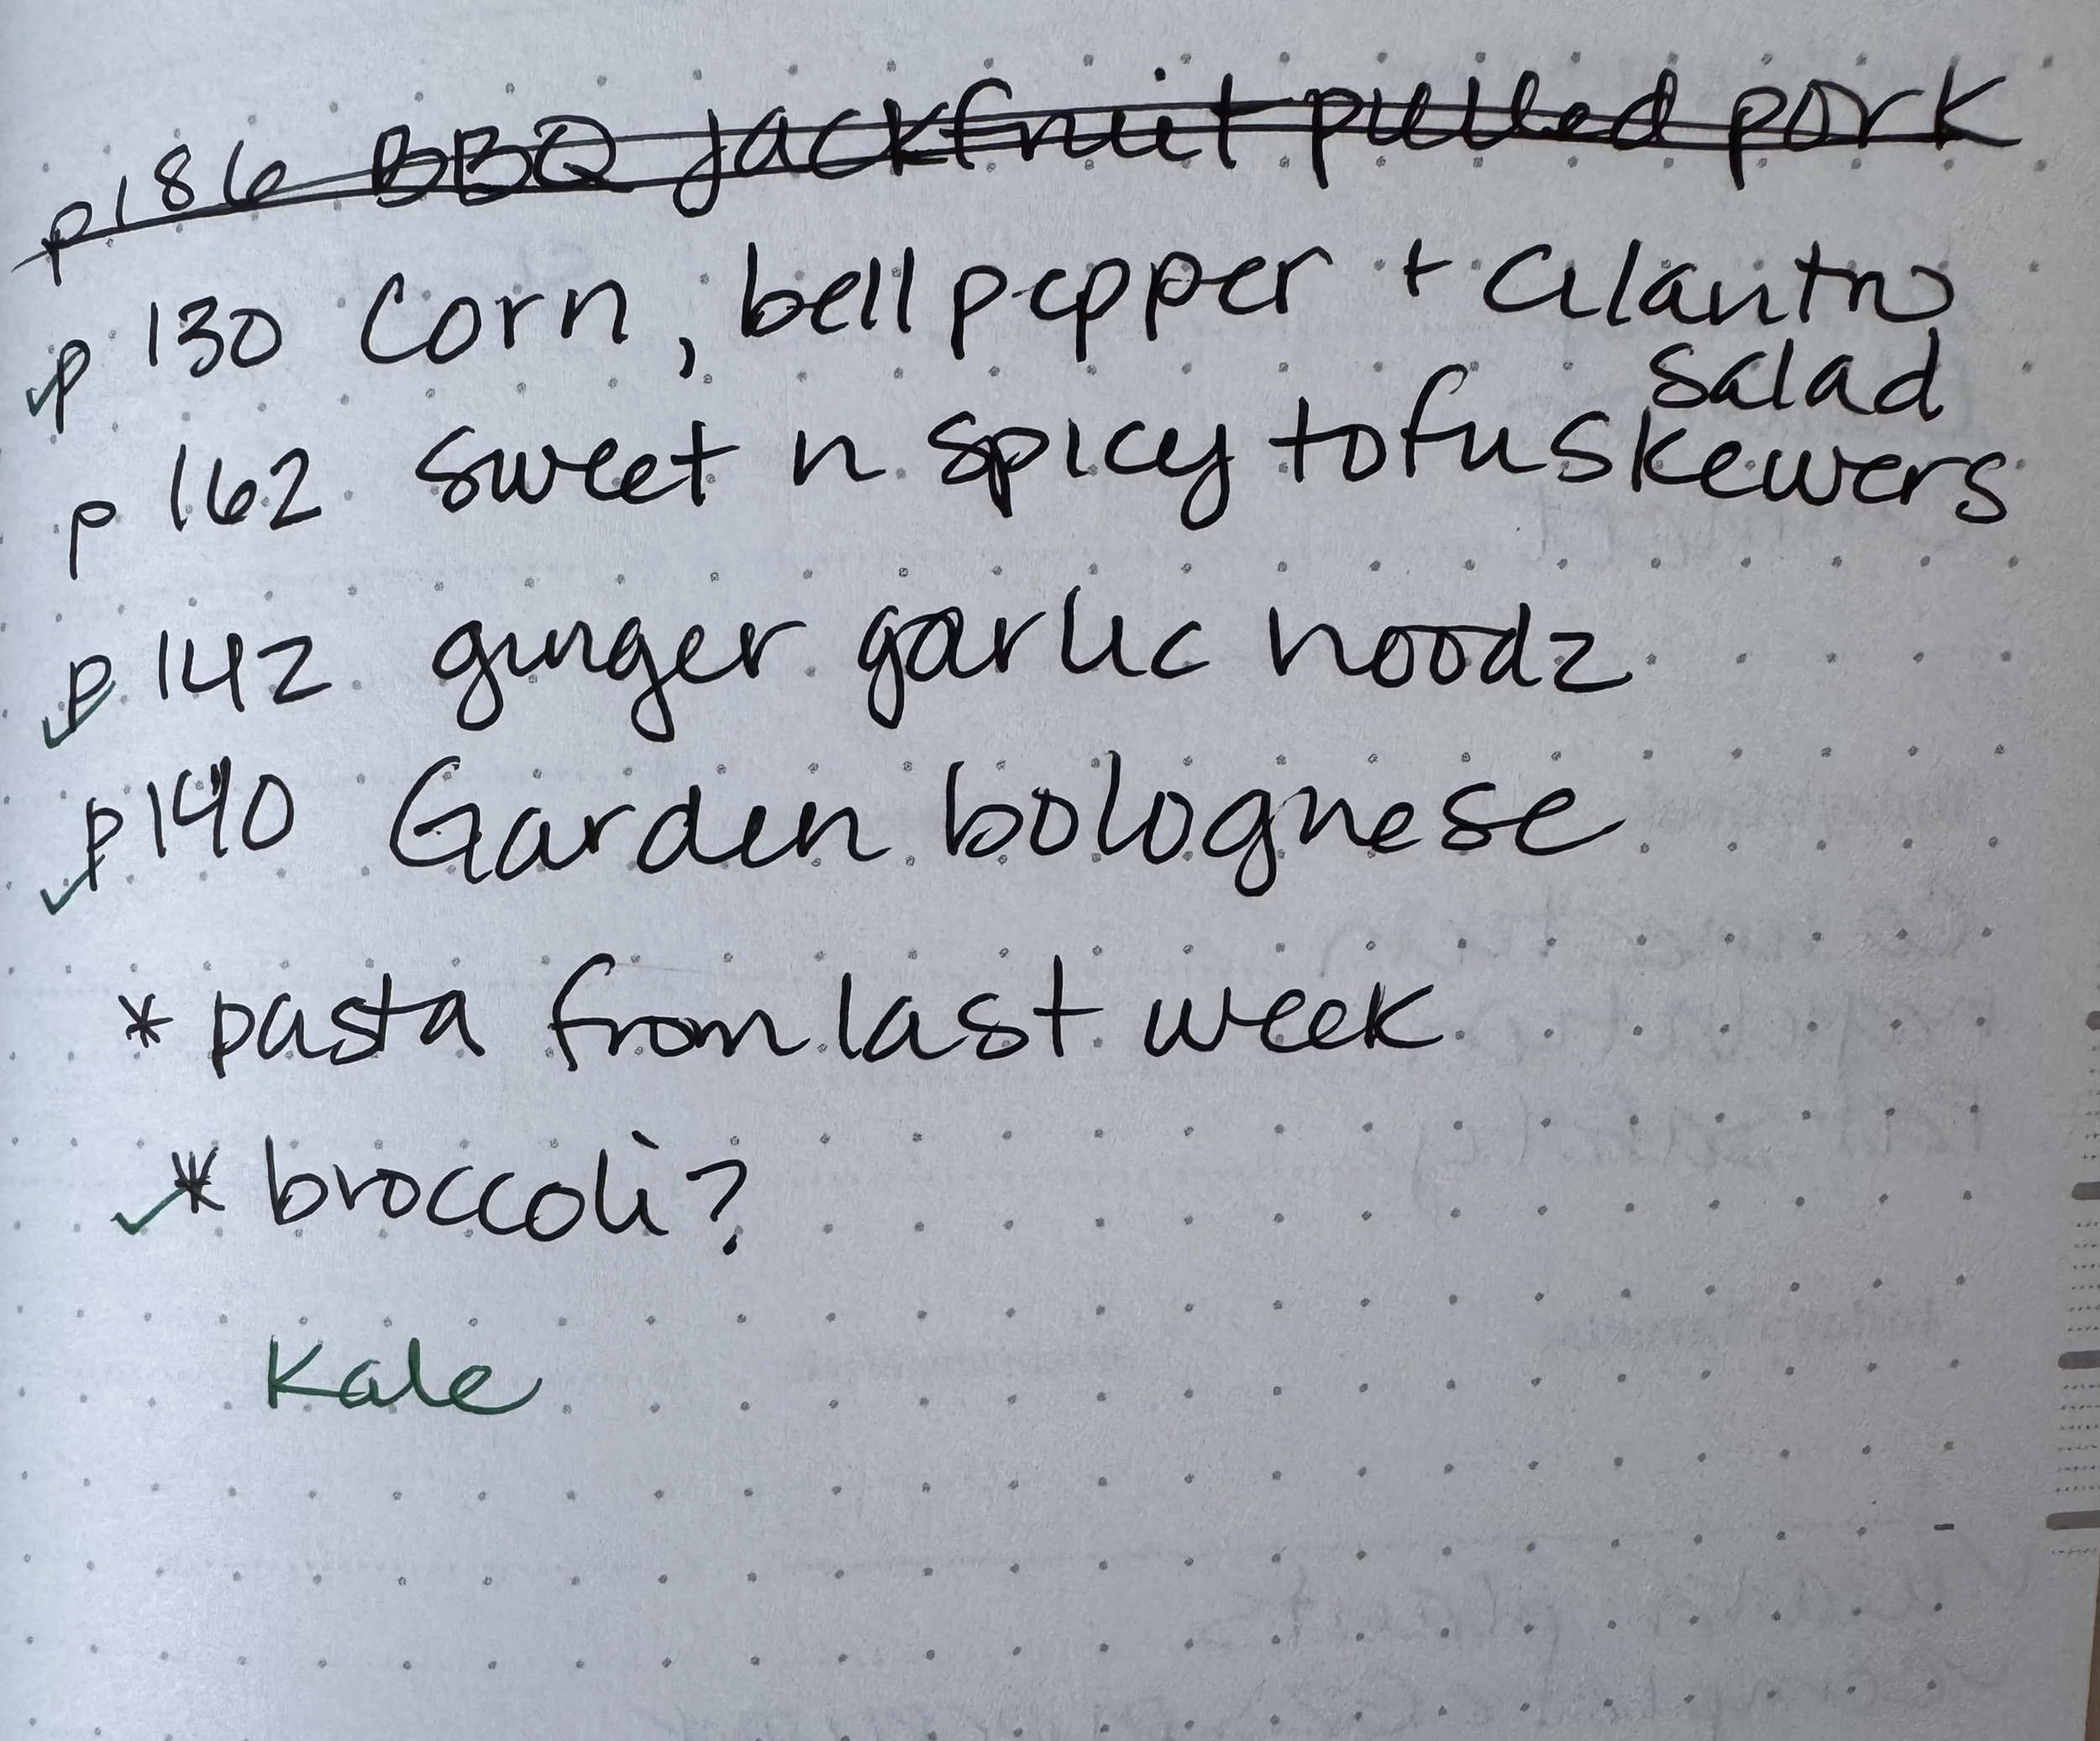 p186 BBQ jackfruit pulled pork
p 130 Corn, bell pepper + cilantro
salad
p 162 sweet n spicy tofu skewers
p 142 ginger garlic noodz
p190 Garden bolognese
* pasta from last week
* broccoli?
Kale